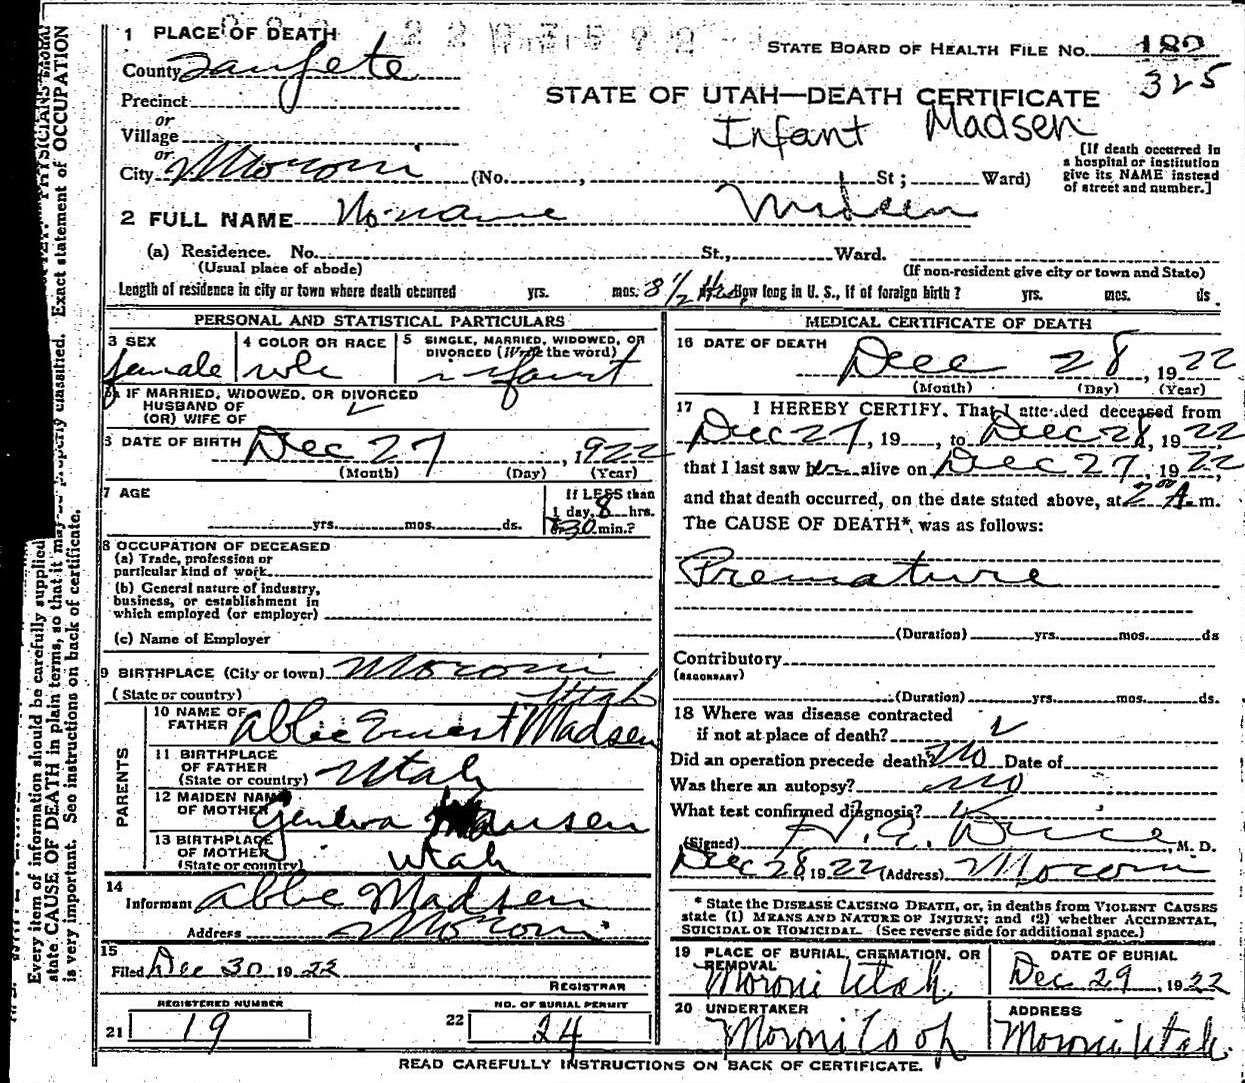 1 PLACE OF DEATH
STATE BOARD OF HEALTH FILE NO. 182
325
County Sanpete
Precinct
or
Village
or
City Moroni (No. , St ; Ward)
STATE OF UTAH—DEATH CERTIFICATE
Infant Madsen
[If death occurred in
a hospital or institution
give its NAME instead
of street and number.]
2 FULL NAME No-name Madsen
(a) Residence. No. St., Ward.
(Usual place of abode)
(If non-resident give city or town and State)
Length of residence in city or town where death occurred yrs. mos. 8 1/2 Hrs. How long in U. S., if of foreign birth ? yrs. mos. ds.
PERSONAL AND STATISTICAL PARTICULARS
3 SEX
female
4 COLOR OR RACE
5 SINGLE, MARRIED, WIDOWED, OR
DIVORCED (Write the word)
infant
IF MARRIED, WIDOWED, OR DIVORCED
HUSBAND OF
(OR) WIFE OF
6 DATE OF BIRTH Dec 27, 1922
(Month) (Day) (Year)
7 AGE
yrs. mos. ds.
If LESS than
1 day, 8 hrs.
or 30 min.?
8 OCCUPATION OF DECEASED
(a) Trade, profession or
particular kind of work
(b) General nature of industry,
business, or establishment in
which employed (or employer)
(c) Name of Employer
9 BIRTHPLACE (City or town) Moroni
(State or country) Utah
PARENTS
10 NAME OF
FATHER Abbie Ernest Madsen
11 BIRTHPLACE
OF FATHER
(State or country) Utah
12 MAIDEN NAME
OF MOTHER Geneva
13 BIRTHPLACE
OF MOTHER
(State or country) Utah
14
Informant Abbie Madsen
Address Moroni
15
Filed Dec 30 1922
REGISTRAR
REGISTERED NUMBER
21 19
NO. OF BURIAL PERMIT
22 24
MEDICAL CERTIFICATE OF DEATH
16 DATE OF DEATH
Dec 28, 1922
(Month) (Day) (Year)
17 I HEREBY CERTIFY, That I attended deceased from
Dec 27, 19 , to Dec 28, 1922
that I last saw her alive on Dec 27, 1922,
and that death occurred, on the date stated above, at 2 00 A m.
The CAUSE OF DEATH* was as follows:
Premature
(Duration) yrs. mos. ds
Contributory
(SECONDARY)
(Duration) yrs. mos. ds.
18 Where was disease contracted
if not at place of death?
Did an operation precede death? No Date of
Was there an autopsy? no
What test confirmed diagnosis?
(Signed) , M. D.
Dec 28, 1922 (Address) Moroni
* State the DISEASE CAUSING DEATH, or, in deaths from VIOLENT CAUSES
state (1) MEANS AND NATURE OF INJURY; and (2) whether ACCIDENTAL,
SUICIDAL OR HOMICIDAL. (See reverse side for additional space.)
19 PLACE OF BURIAL, CREMATION, OR
REMOVAL
Moroni Utah
DATE OF BURIAL
Dec 29, 1922
20 UNDERTAKER
Moroni Co op
ADDRESS
Moroni Utah.
READ CAREFULLY INSTRUCTIONS ON BACK OF CERTIFICATE.
Every item of information should be carefully supplied
PHYSICIANS should
state CAUSE OF DEATH in plain terms, so that it may be properly classified. Exact statement of OCCUPATION
is very important. See instructions on back of certificate.